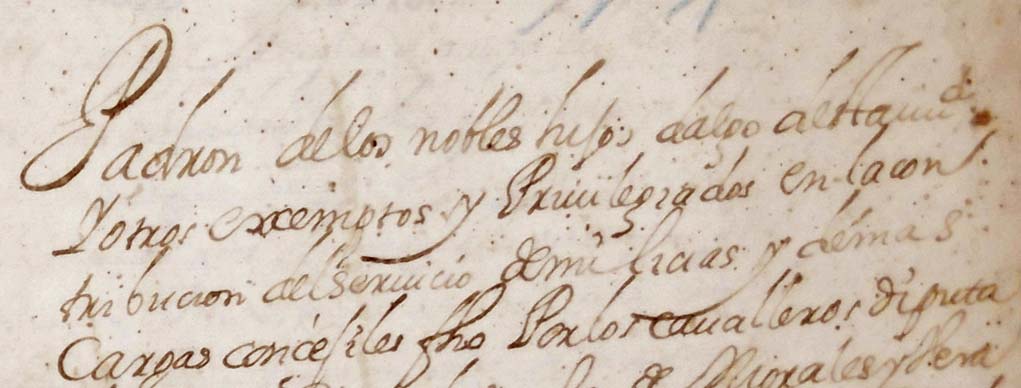 Padron delos nobles hijos dalgo de esta ciud.
Y otros exemptos y Privilegiados en la con
tribucion del servicio de milicias y demas
Cargas concejiles fho Por los cavalleros diputa
de Morales y Vera